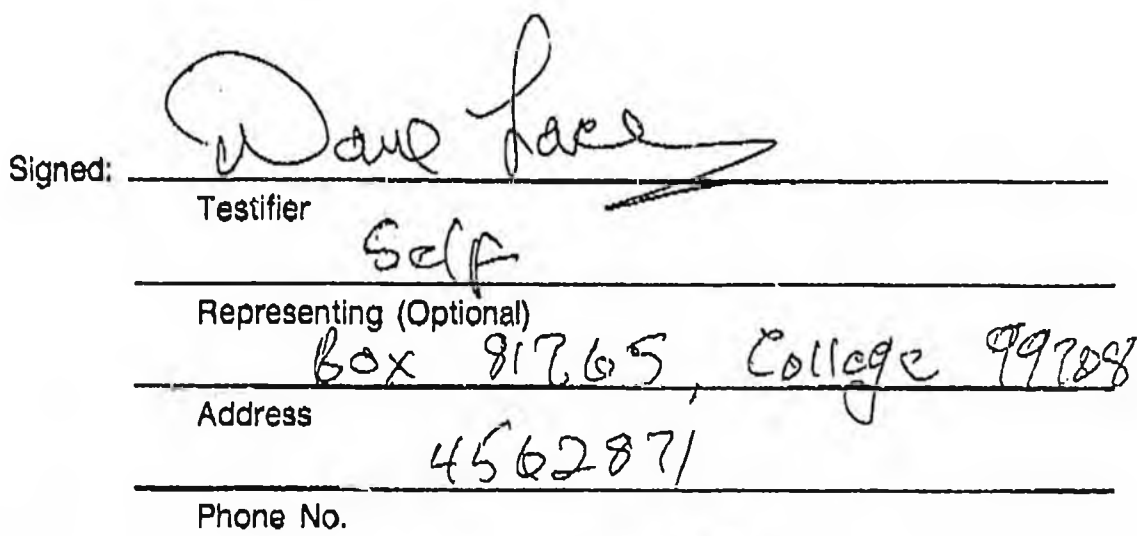 Dave Lacey
Signed:
Testifier
Self
Representing (Optional)
Box 81765, College 99708
Address
4562871
Phone No.